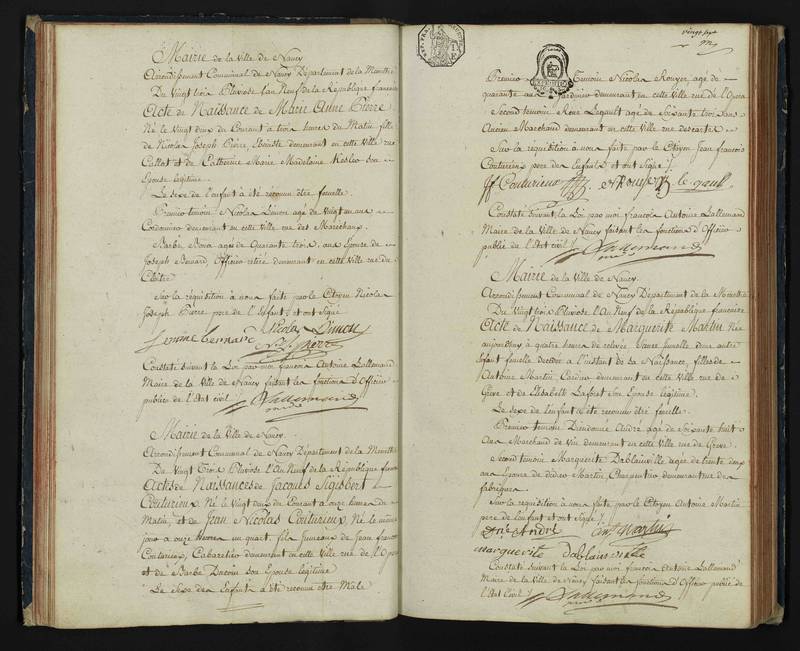 Mairie de la Ville de Nancy
Arrondissement Communal de Nancy Département de la Meurthe
Du Vingt trois Pluviose l'an Neuf de la République française
Acte de Naissance de Marie Anne Pierre
Né le Vingt deux du Courant à trois heures du Matin fille
de Nicolas Joseph Pierre, Ebéniste demeurant en cette Ville rue
Callot et de Catherine Marie Madelaine son
Epouse légitime.
Le Sexe de l'enfant à été reconnu être femelle.
Premier témoin Nicolas agé de Vingt un ans
Cordonnier demeurant en cette Ville rue des Maréchaux.
Barbe agée de Quarante trois ans Epouse de
Joseph Bernard, Officier retiré demeurant en cette Ville rue du
Cloitre
Sur la réquisition à nous faite par le Citoyen Nicolas
Joseph Pierre père de l'Enfant, et ont Signé
femme bernard Nicolas
Pierre
Constaté Suivant la Loi par moi françois Antoine Lallemand
Maire de la Ville de Nancy faisant les fonctions d'Officier
public de l'Etat civil. Lallemand
Mairie de la Ville de Nancy.
Arrondissement Communal de Nancy Département de la Meurthe
Du Vingt Trois Pluviose l'an Neuf de la République française
Actes de Naissances de Jacques Sigisbert
Couturieux, Né le Vingt deux du Courant à onze heures du
Matin, et de Jean Nicolas Couturieux, Né le même
jour à onze heures un quart, fils Jumeaux de Jean françois
Couturieux, Cabaretier demeurant en cette Ville rue de l'Opera
et de Barbe son Epouse légitime
Le Sexe des Enfants a été reconnu être Male
Vingt Sept
Premier Temoin Nicolas Rouyer, agé de
quarante ans Jardinier demeurant en cette Ville rue de l'Opera
Second temoin René Legault agé de Soixante trois ans
Ancien Marchand demeurant en cette Ville rue descartes
Sur la réquisition à nous faite par le Citoyen Jean françois
Couturieux père des Enfants et ont Signé
Couturieux N Rouyer le gault
Constaté Suivant la Loi par moi françois Antoine Lallemand
Maire de la Ville de Nancy faisant les fonctions d'Officier
public de l'Etat civil. Lallemand
Mairie de la Ville de Nancy.
Arrondissement Communal de Nancy Département de la Meurthe
Du Vingt trois Pluviose l'An Neuf de la République française
Acte de Naissance de Marguerite Martin Née
aujourd'huy à quatre heures de relevée Jumelle d'une autre
Enfant femelle decedée à l'instant de Sa Naissance, filles de
Antoine Martin demeurant en cette Ville rue de
Grève et de Elisabeth Son Epouse légitime.
Le Sexe de l'enfant a été reconnu être femelle.
Premier temoin Dieudonné André agé de Soixante huit
ans Marchand de Vin demeurant en cette Ville rue de Grève.
Second temoin Marguerite Dablainville agée de trente deux
ans Epouse de Martin, Charpentier demeurant rue des
fabriques
Sur la réquisition à nous faite par le Citoyen Antoine Martin
père de l'enfant et ont Signé
André Martin
marguerite dablainville
Constaté suivant la Loi par moi françois Antoine Lallemand
Maire de la Ville de Nancy faisant les fonctions d'Officier public de
l'Etat Civil. Lallemand